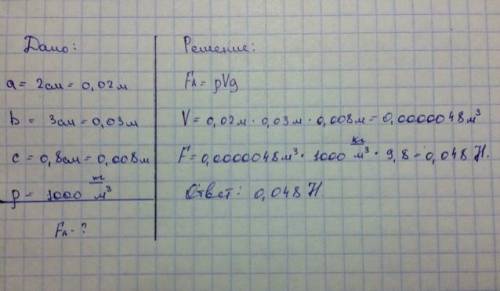 Дано:
a = 2см = 0,02м
b = 3см = 0,03м
c = 0,8см = 0,008м
ρ = 1000 кг/м³
Fл - ?
Решение:
Fл = ρVg
V = 0,02м · 0,03м · 0,008м = 0,0000048м³
F = 0,0000048м³ · 1000 кг/м³ · 9,8 = 0,048 Н.
Ответ: 0,048 Н